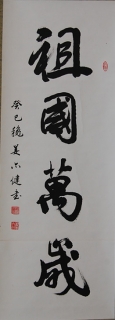 祖國萬歲
癸巳穐姜心健书